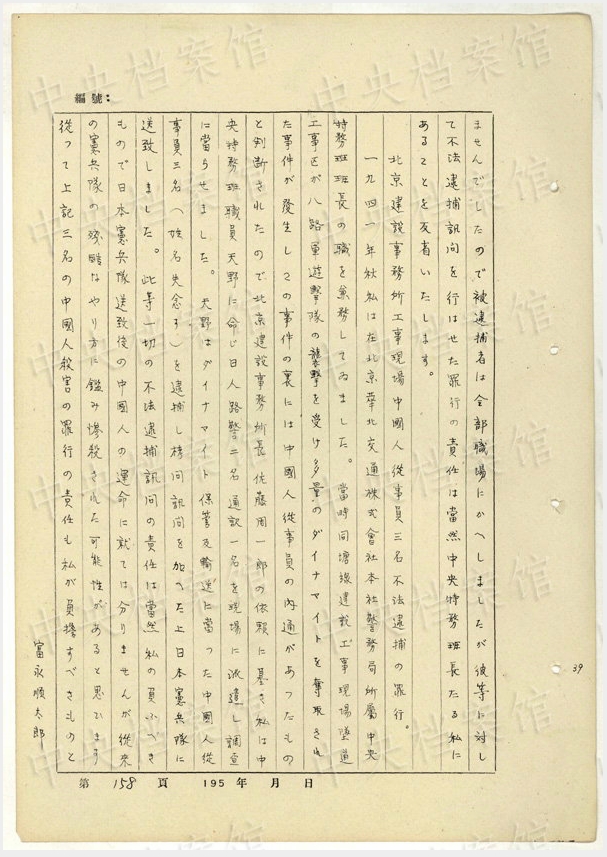 編號：
ませんでしたので被逮捕者は全部職場にかへしましたが彼等に対し
て不法逮捕訊問を行はせた罪行の責任は當然中央特務班長たる私に
あることを反省いたします。
北京建設事務所工事現場中國人從事員三名不法逮捕の罪行。
一九四一年秋私は在北京華北交通株式會社本社警務局所屬中央
特務班班長の職を兼務してゐました。當時同塘線建設工事現場隧道
工事区が八路軍遊擊隊の襲擊を受け多量のダイナマイトを奪取され
た事件が発生しこの事件の裏には中國人從事員の內通があつたもの
と判断されたので北京建設事務所長佐藤周一郎の依賴に基き私は中
央特務班職員天野に命じ日人路警二名通訳一名を現場に派遣し調査
に當らせました。天野はダイナマイト保管及輸送に當つた中國人從
事員三名（姓名失念す）を逮捕し拷問訊問を加へた上日本憲兵隊に
送致しました。此等一切の不法逮捕訊問の責任は當然私の負ふべき
もので日本憲兵隊送致後の中國人の運命に就ては分りませんが從来
の憲兵隊の残酷なやり方に鑑み惨殺された可能性があると思ひます
從つて上記三名の中國人殺害の罪行の責任も私が負擔すべきものと
富永順太郎
39
第 158 頁 195 年 月 日
中央档案馆